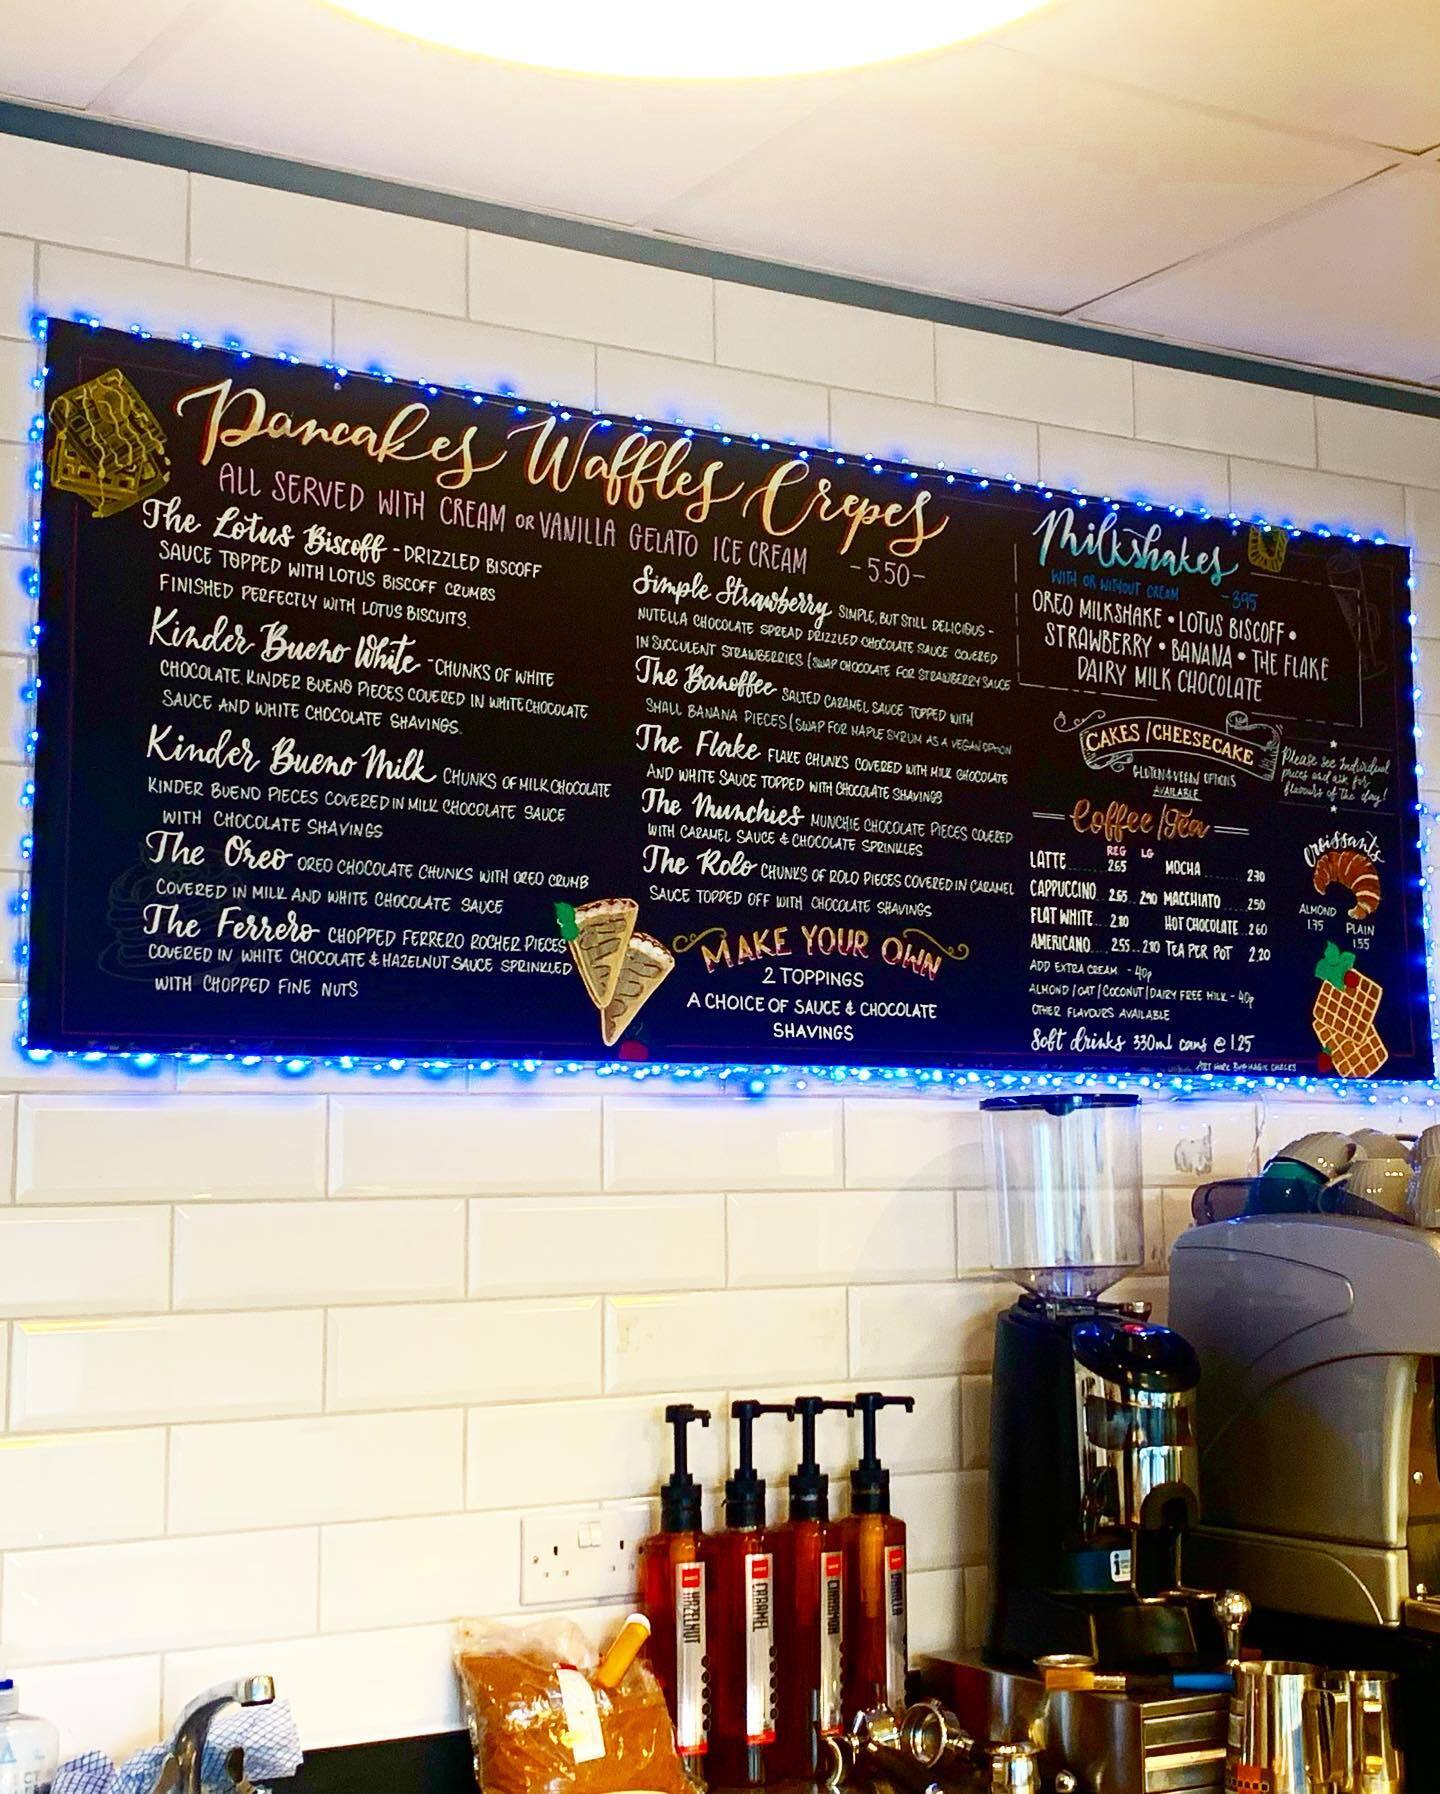 Pancakes Waffles Crepes
ALL SERVED WITH CREAM OR VANILLA GELATO ICE CREAM -5.50-
The Lotus Biscoff - DRIZZLED BISCOFF
SAUCE TOPPED WITH LOTUS BISCOFF CRUMBS
FINISHED PERFECTLY WITH LOTUS BISCUITS.
Kinder Bueno White - CHUNKS OF WHITE
CHOCOLATE, KINDER BUENO PIECES COVERED IN WHITE CHOCOLATE
SAUCE AND WHITE CHOCOLATE SHAVINGS.
Kinder Bueno Milk CHUNKS OF MILK CHOCOLATE
KINDER BUENO PIECES COVERED IN MILK CHOCOLATE SAUCE
WITH CHOCOLATE SHAVINGS
The Oreo OREO CHOCOLATE CHUNKS WITH OREO CRUMB
COVERED IN MILK AND WHITE CHOCOLATE SAUCE
The Ferrero CHOPPED FERRERO ROCHER PIECES
COVERED IN WHITE CHOCOLATE & HAZELNUT SAUCE SPRINKLED
WITH CHOPPED FINE NUTS
Simple Strawberry SIMPLE, BUT STILL DELICIOUS -
NUTELLA CHOCOLATE SPREAD DRIZZLED CHOCOLATE SAUCE COVERED
IN SUCCULENT STRAWBERRIES (SWAP CHOCOLATE FOR STRAWBERRY SAUCE
The Banoffee SALTED CARAMEL SAUCE TOPPED WITH
SMALL BANANA PIECES (SWAP FOR MAPLE SYRUM AS A VEGAN OPTION
The Flake FLAKE CHUNKS COVERED WITH MILK CHOCOLATE
AND WHITE SAUCE TOPPED WITH CHOCOLATE SHAVINGS
The Munchies MUNCHIE CHOCOLATE PIECES COVERED
WITH CARAMEL SAUCE & CHOCOLATE SPRINKLES
The Rolo CHUNKS OF ROLO PIECES COVERED IN CARAMEL
SAUCE TOPPED OFF WITH CHOCOLATE SHAVINGS
MAKE YOUR OWN
2 TOPPINGS
A CHOICE OF SAUCE & CHOCOLATE
SHAVINGS
Milkshakes
WITH OR WITHOUT CREAM - 3.95
OREO MILKSHAKE • LOTUS BISCOFF •
STRAWBERRY • BANANA • THE FLAKE
DAIRY MILK CHOCOLATE
CAKES / CHEESECAKE
GLUTEN & VEGAN OPTIONS
AVAILABLE
Please see individual
prices and ask for
flavours of the day!
Coffee / Tea
REG LG
LATTE 2.65
CAPPUCCINO 2.65 2.90
FLAT WHITE 2.80
AMERICANO 2.55 2.80
MOCHA 2.70
MACCHIATO 2.50
HOT CHOCOLATE 2.60
TEA PER POT 2.20
ADD EXTRA CREAM - 40p
ALMOND / OAT / COCONUT / DAIRY FREE MILK - 40p
OTHER FLAVOURS AVAILABLE
Soft drinks 330ml cans @ 1.25
Croissants
ALMOND
1.75
PLAIN
1.55
HAZELNUT
CARAMEL
CINNAMON
VANILLA